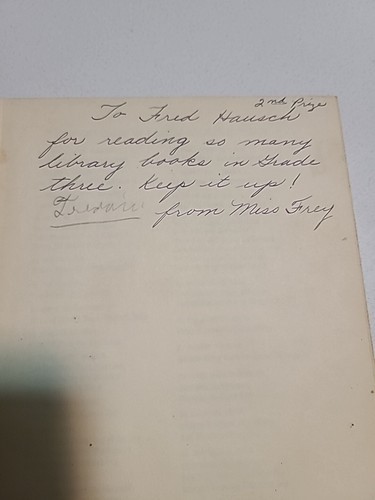 2nd Prize
To Fred Hausch
for reading so many
library books in Grade
three. Keep it up!
from Miss Frey